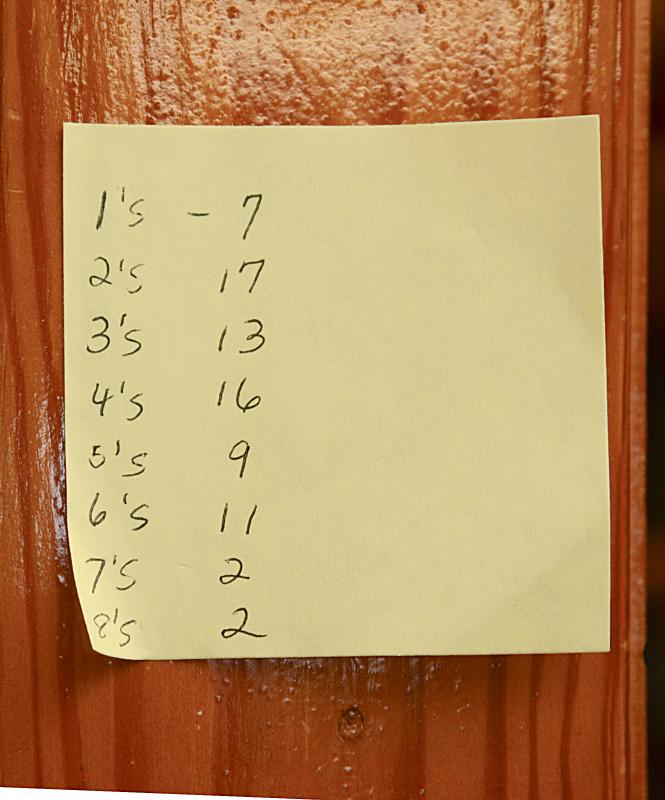 1's - 7
2's 17
3's 13
4's 16
5's 9
6's 11
7's 2
8's 2